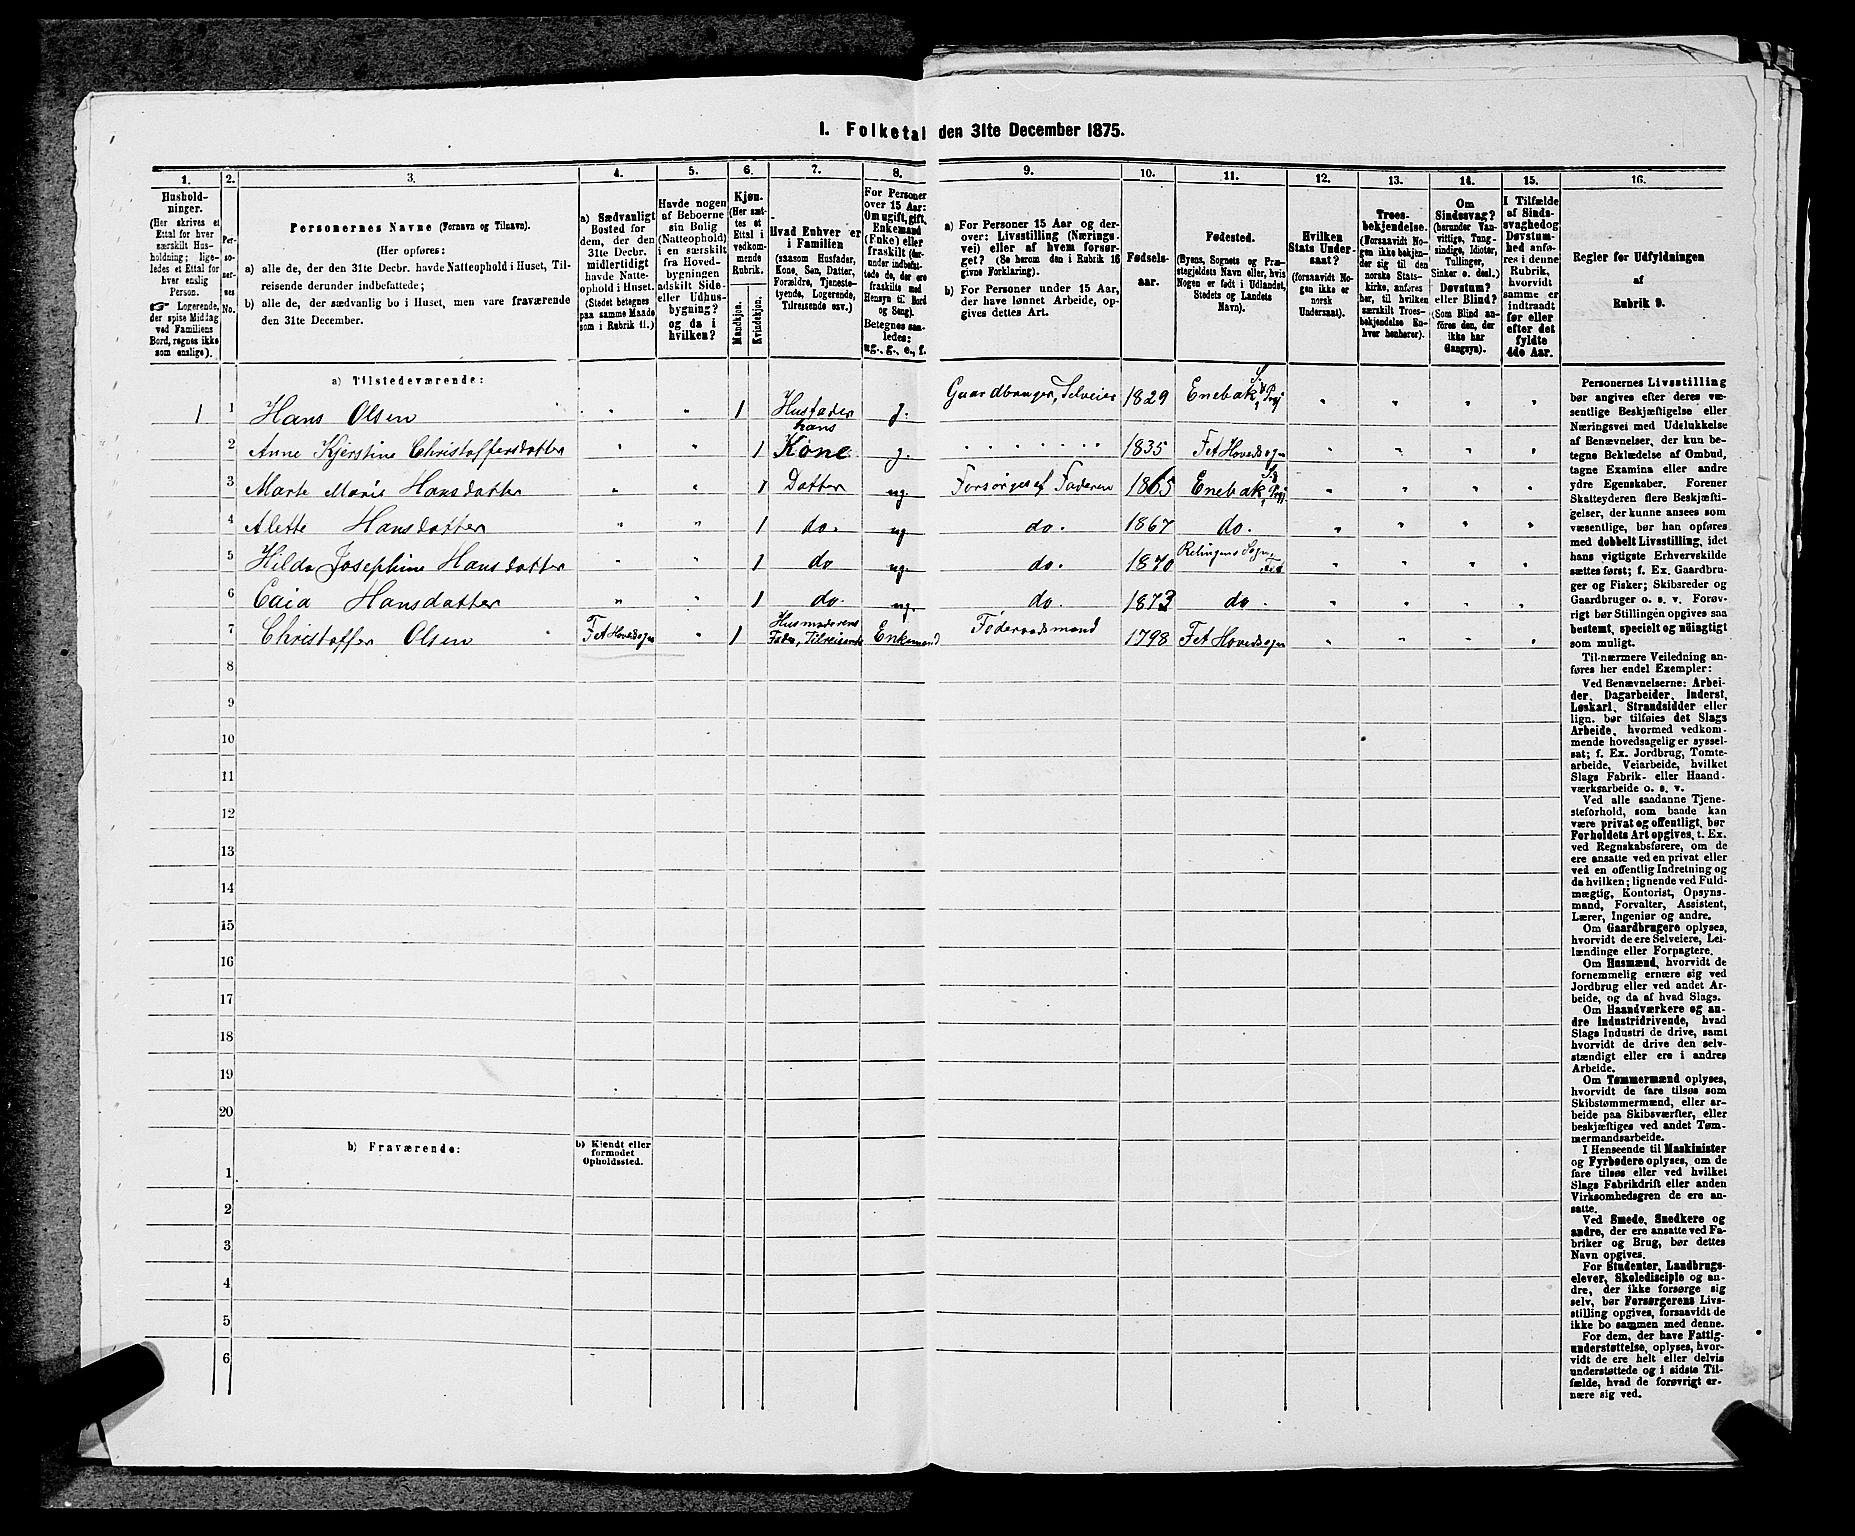 I. Folketal den 31te December 1875.
1. 2. 3. 4. 5. 6. 7. 8. 9. 10. 11. 12. 13. 14. 15. 16.
Hushold-
ninger.
(Her skrives et
Ettal for hver
særskilt Hus-
holdning; lige-
ledes et Ettal for
hver enslig
Person.
☞ Logerende,
der spise Middag
ved Familiens
Bord, regnes ikke
som enslige).
Per-
so-
ner-
nes
No.
Personernes Navne (Fornavn og Tilnavn).
(Her opføres:
a) alle de, der den 31te Decbr. havde Natteophold i Huset, Til-
reisende derunder indbefattede;
b) alle de, der sædvanlig bo i Huset, men vare fraværende
den 31te December.
a) Sædvanligt
Bosted for
dem, der den
31te Decbr.
midlertidigt
havde Natte-
ophold i Huset.
(Stedet betegnes
paa samme Maade
som i Rubrik 11.)
Havde nogen
af Beboerne
sin Bolig
(Natteophold)
i en særskilt
fra Hoved-
bygningen
adskilt Side-
eller Udhus-
bygning?
og da i
hvilken?
Kjøn.
(Her sæt-
tes et
Ettal i
vedkom-
mende
Rubrik.
Mandkjøn.
Kvindekjøn.
Hvad Enhver er
i Familien
(saasom Husfader,
Kone, Søn, Datter,
Forældre, Tjeneste-
tyende, Logerende,
Tilreisende osv.)
For Personer
over 15 Aar:
Om ugift, gift,
Enkemand
(Enke) eller
fraskilt (her-
under indbefat-
tede de, der ere
fraskilte med
Hensyn til Bord
og Seng).
Betegnes saa-
ledes:
ug., g., e., f.
a) For Personer 15 Aar og der-
over: Livsstilling (Nærings-
vei) eller af hvem forsør-
get? (Se herom den i Rubrik 16
givne Forklaring).
b) For Personer under 15 Aar,
der have lønnet Arbeide, op-
gives dettes Art.
Fødsels-
aar.
Fødested.
(Byens, Sognets og Præ-
stegjeldets Navn eller, hvis
Nogen er født i Udlandet,
Stedets og Landets
Navn).
Hvilken
Stats Under-
saat?
(forsaavidt No-
gen ikke er
norsk
Undersaat).
Troes-
bekjendelse.
(Forsaavidt No-
gen ikke bekjen-
der sig til den
norske Stats-
kirke, anføres
her, til hvilken
særskilt Troes-
bekjendelse En-
hver henhører).
Om
Sindssvag?
(herunder Van-
vittige, Tung-
sindige, Idioter,
Tullinger,
Sinker o. desl.)
Døvstum?
eller Blind?
(Som Blind an-
føres den, der
ikke har
Gangsyn).
I Tilfælde
af Sinds-
svaghed og
Døvstum-
hed anfø-
res i denne
Rubrik,
hvorvidt
samme er
indtraadt
før eller
efter det
fyldte
4de Aar.
Regler for Udfyldningen
af
Rubrik 9.
a) Tilstedeværende:
1 1 Hans Olsen " " 1 Husfader g. Gaardbruger, Selveier 1829 Enebak S. & Prgj " " " "
2 Anne Kjerstine Christoffersdatter " " 1 hans Kone g. 1835 Fet Hovedsogn " " " "
3 Marte Marie Hansdatter " " 1 Datter ug. Forsørges af Faderen 1865 Enebak S. & Prgj " " " "
4 Alette Hansdatter " " 1 do. ug do. 1867 do. " " " "
5 Hilda Josephine Hansdatter " " 1 do ug. do. 1870 Relingens Sogn, Fet " " " "
6 Caia Hansdatter " " 1 do. ug. do. 1873 do. " " " "
7 Christoffer Olsen Fet Hovedsogn " 1 Husmoderens Fader, Tilreisende Enkemand Føderaadsmand 1798 Fet Hovedsogn " " " "
8
9
10
11
12
13
14
15
16
17
18
19
20
b) Fraværende:
b) Kjendt eller
formodet
Opholdssted.
1
2
3
4
5
6
Personernes Livsstilling
bør angives efter deres væ-
sentlige Beskjæftigelse eller
Næringsvei med Udelukkelse
af Benævnelser, der kun be-
tegne Beklædelse af Ombud,
tagne Examina eller andre
ydre Egenskaber. Forener
Skatteyderen flere Beskjæfti-
gelser, der kunne ansees som
væsentlige, bør han opføres
med dobbelt Livsstilling, idet
hans vigtigste Erhvervskilde
sættes først; f. Ex. Gaardbru-
ger og Fisker; Skibsreder og
Gaardbruger o. s. v. Forøv-
rigt bør Stillingen opgives saa
bestemt, specielt og nøiagtigt
som muligt.
Til nærmere Veiledning an-
føres her endel Exempler:
Ved Benævnelserne: Arbei-
der, Dagarbeider, Inderst,
Løskarl, Strandsidder eller
lign. bør tilføies det Slags
Arbeide, hvormed vedkom-
mende hovedsagelig er syssel-
sat; f. Ex. Jordbrug, Tomte-
arbeide, Veiarbeide, hvilket
Slags Fabrik- eller Haand-
værksarbeide o. s. v.
Ved alle saadanne Tjene-
steforhold, som baade kan
være privat og offentligt, bør
Forholdets Art opgives, t. Ex.
ved Regnskabsførere, om de
ere ansatte ved en privat eller
ved en offentlig Indretning og
da hvilken; lignende ved Fuld-
mægtig, Kontorist, Opsyns-
mand, Forvalter, Assistent,
Lærer, Ingeniør og andre.
Om Gaardbrugere oplyses,
hvorvidt de ere Selveiere, Lei-
lændinge eller Forpagtere.
Om Husmænd, hvorvidt de
fornemmelig ernære sig ved
Jordbrug eller ved andet Ar-
beide, og da af hvad Slags.
Om Haandværkere og an-
dre Industridrivende, hvad
Slags Industri de drive, samt
hvorvidt de drive den selv-
stændigt eller ere i andres
Arbeide.
Om Tømmermænd oplyses,
hvorvidt de fare tilsøs som
Skibstømmermænd, eller ar-
beide paa Skibsværfter, eller
beskjæftiges ved andet Tøm-
mermandsarbeide.
I Henseende til Maskinister
og Fyrbødere oplyses, om de
fare tilsøs eller ved hvilket
Slags Fabrikdrift eller anden
Virksomhedsgren de ere an-
satte.
Ved Smede, Snedkere og
andre, der ere ansatte ved Fa-
briker og Brug, bør dettes
Navn opgives.
For Studenter, Landbrugs-
elever, Skoledisciple og an-
dre, der ikke forsørge sig
selv, bør Forsørgerens Livs-
stilling opgives, forsaavidt de
ikke bo sammen med denne.
For dem, der have Fattig-
understøttelse, oplyses, hvor-
vidt de ere helt eller delvis
understøttede og i sidste Til-
fælde, hvad de forøvrigt er-
nære sig ved.